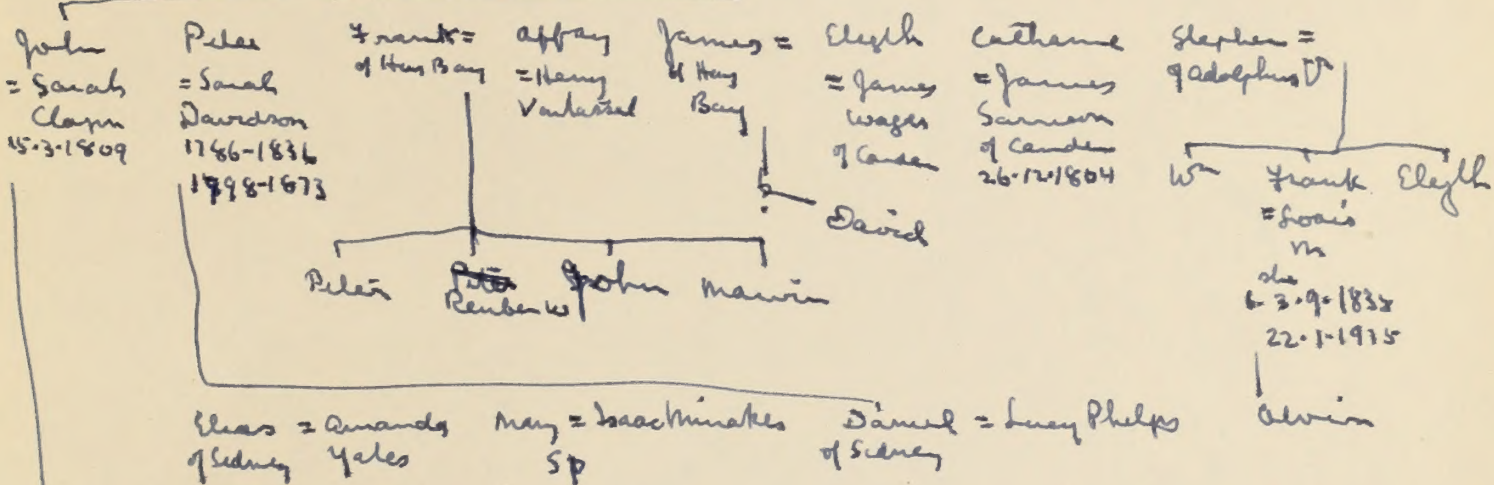 John
= Sarah
Clapp
15.3.1809
Peter
= Sarah
Davidson
1786-1836
1798-1873
Frank =
of Hay Bay
Affay
= Henry
Vantassel
James =
of Hay
Bay
Elizth
= James
Wager
of Camden
Catherine
= James
of Camden
26.12.1804
Stephen =
of Adolphus
Wm
Frank
= Lois
M
she
b 3.9.1838
22.1.1935
Elizth
?
David
Peter
Reuben W
John
Marvin
Elias = Amanda
of Sidney Yates
Mary = Isaac Minakes
sp
Daniel = Lucy Phelps
of Sidney
Alvin